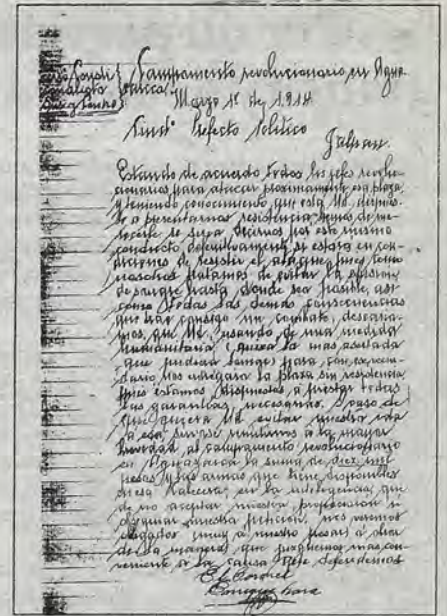 Campamento revolucionario en Agua
Marzo 1º de 1914
Prefecto Politico
Jalpan.
Estando de acuerdo todos los jefes revolu-
cionarios para atacar proximamente esa plaza,
y teniendo conocimiento que está Ud. dispues-
to a presentarnos resistencia, hemos de me-
recerle se sirva decirnos por este mismo
conducto, definitivamente si estará en con-
diciones de resistir el ataque, pues como
nosotros tratamos de evitar la efusion
de sangre hasta donde sea posible, asi
como todas las demás consecuencias
que trae consigo un combate, deseara-
mos, que Ud. usando de una medida
humanitaria (quiza la mas acertada
que pudiera tener) para con ese vecin-
dario nos entregara la plaza sin resistencia
pues estamos dispuestos a prestar todas
las garantías necesarias. Caso de
que quiera Ud. evitar nuestra ida
a esa, sirvase remitirnos a la mayor
brevedad al campamento revolucionario
en la suma de diez mil
pesos y las armas que tiene disponibles
en esa Cabecera, en la inteligencia, que
de no aceptar nuestra proposicion
nuestra peticion, nos veremos
obligados (muy a nuestro pesar) a obrar
de la manera que juzguemos mas con-
veniente a la causa que defendemos
El Coronel